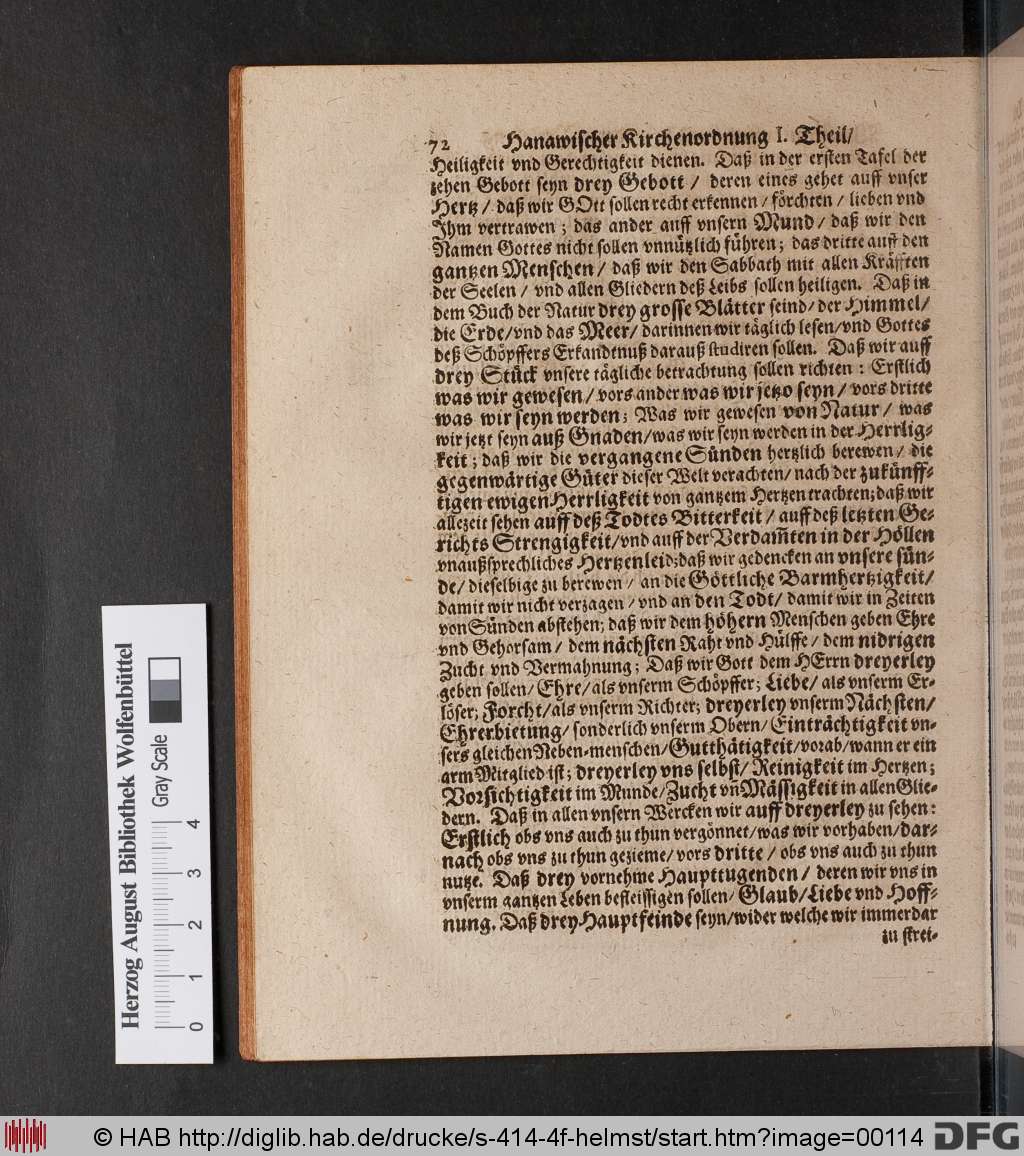 72 Hanawischer Kirchenordnung I. Theil/
Heiligkeit vnd Gerechtigkeit dienen. Daß in der ersten Tafel der
zehen Gebott seyn drey Gebott / deren eines gehet auff vnser
Hertz / daß wir GOtt sollen recht erkennen / förchten / lieben vnd
Ihm vertrawen ; das ander auff vnsern Mund / daß wir den
Namen Gottes nicht sollen vnnützlich führen ; das dritte auff den
gantzen Menschen / daß wir den Sabbath mit allen Kräfften
der Seelen / vnd allen Gliedern deß Leibs sollen heiligen. Daß in
dem Buch der Natur drey grosse Blätter seind / der Himmel /
die Erde / vnd das Meer / darinnen wir täglich lesen / vnd Gottes
deß Schöpffers Erkandtnuß darauß studiren sollen. Daß wir auff
drey Stück vnsere tägliche betrachtung sollen richten : Erstlich
was wir gewesen / vors ander was wir jetzo seyn / vors dritte
was wir seyn werden ; Was wir gewesen von Natur / was
wir jetzt seyn auß Gnaden / was wir seyn werden in der Herrlig-
keit ; daß wir die vergangene Sünden hertzlich berewen / die
gegenwärtige Güter dieser Welt verachten / nach der zukünff-
tigen ewigen Herrligkeit von gantzem Hertzen trachten ; daß wir
allezeit sehen auff deß Todtes Bitterkeit / auff deß letzten Ge-
richts Strengigkeit / vnd auff der Verdam̃ten in der Höllen
vnaußsprechliches Hertzenleid ; daß wir gedencken an vnsere sün-
de / dieselbige zu berewen / an die Göttliche Barmhertzigkeit /
damit wir nicht verzagen / vnd an den Todt / damit wir in Zeiten
von Sünden abstehen ; daß wir dem höhern Menschen geben Ehre
vnd Gehorsam / dem nächsten Raht vnd Hülffe / dem nidrigen
Zucht vnd Vermahnung ; Daß wir Gott dem HErrn dreyerley
geben sollen / Ehre / als vnserm Schöpffer ; Liebe / als vnserm Er-
löser ; Forcht / als vnserm Richter ; dreyerley vnserm Nächsten /
Ehrerbietung / sonderlich vnserm Obern / Einträchtigkeit vn-
sers gleichen Neben-menschen / Gutthätigkeit / vorab / wann er ein
arm Mitglied ist ; dreyerley vns selbst / Reinigkeit im Hertzen ;
Vorsichtigkeit im Munde / Zucht vn̄ Mässigkeit in allen Glie-
dern. Daß in allen vnsern Wercken wir auff dreyerley zu sehen :
Erstlich obs vns auch zu thun vergönnet / was wir vorhaben / dar-
nach obs vns zu thun gezieme / vors dritte / obs vns auch zu thun
nutze. Daß drey vornehme Haupttugenden / deren wir vns in
vnserm gantzen Leben befleissigen sollen / Glaub / Liebe vnd Hoff-
nung. Daß drey Hauptfeinde seyn / wider welche wir immerdar
zu strei-
Herzog August Bibliothek Wolfenbüttel
Gray Scale
0 1 2 3 4
© HAB http://diglib.hab.de/drucke/s-414-4f-helmst/start.htm?image=00114
DFG